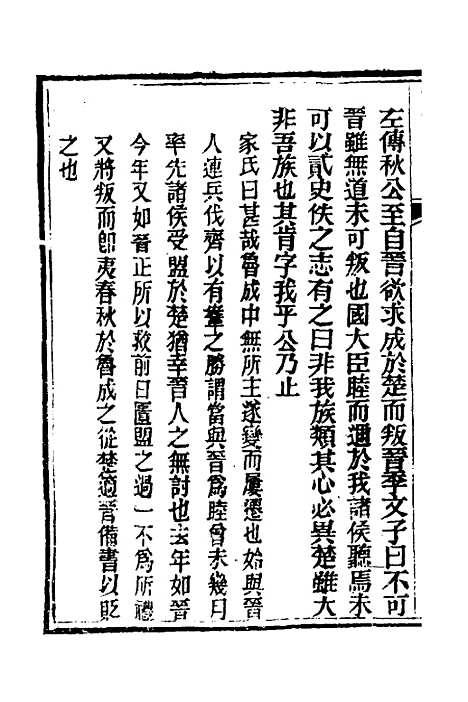 左傳秋公至自晉欲求成於楚而叛晉季文子曰不可
晉雖無道未可叛也國大臣睦而邇於我諸侯聽焉未
可以貳史佚之志有之曰非我族類其心必異楚雖大
非吾族也其肯字我乎公乃止
家氏曰甚哉魯成中無所主遂變而屢遷也始與晉
人連兵伐齊以有鞌之勝謂當與晉爲睦曾未幾日
率先諸侯受盟於楚猶幸晉人之無討也去年如晉
今年又如晉正所以救前日匱盟之過一不爲所禮
又將叛而卽夷春秋於魯成之從楚適晉備書以貶
之也